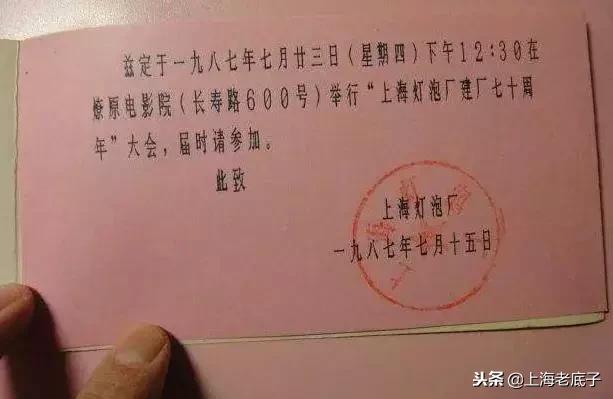 兹定于一九八七年七月廿三日(星期四)下午12:30在
燎原电影院(长寿路600号)举行“上海灯泡厂建厂七十周
年”大会,届时请参加。
此致
上海灯泡厂
一九八七年七月十五日
头条 @上海老底子